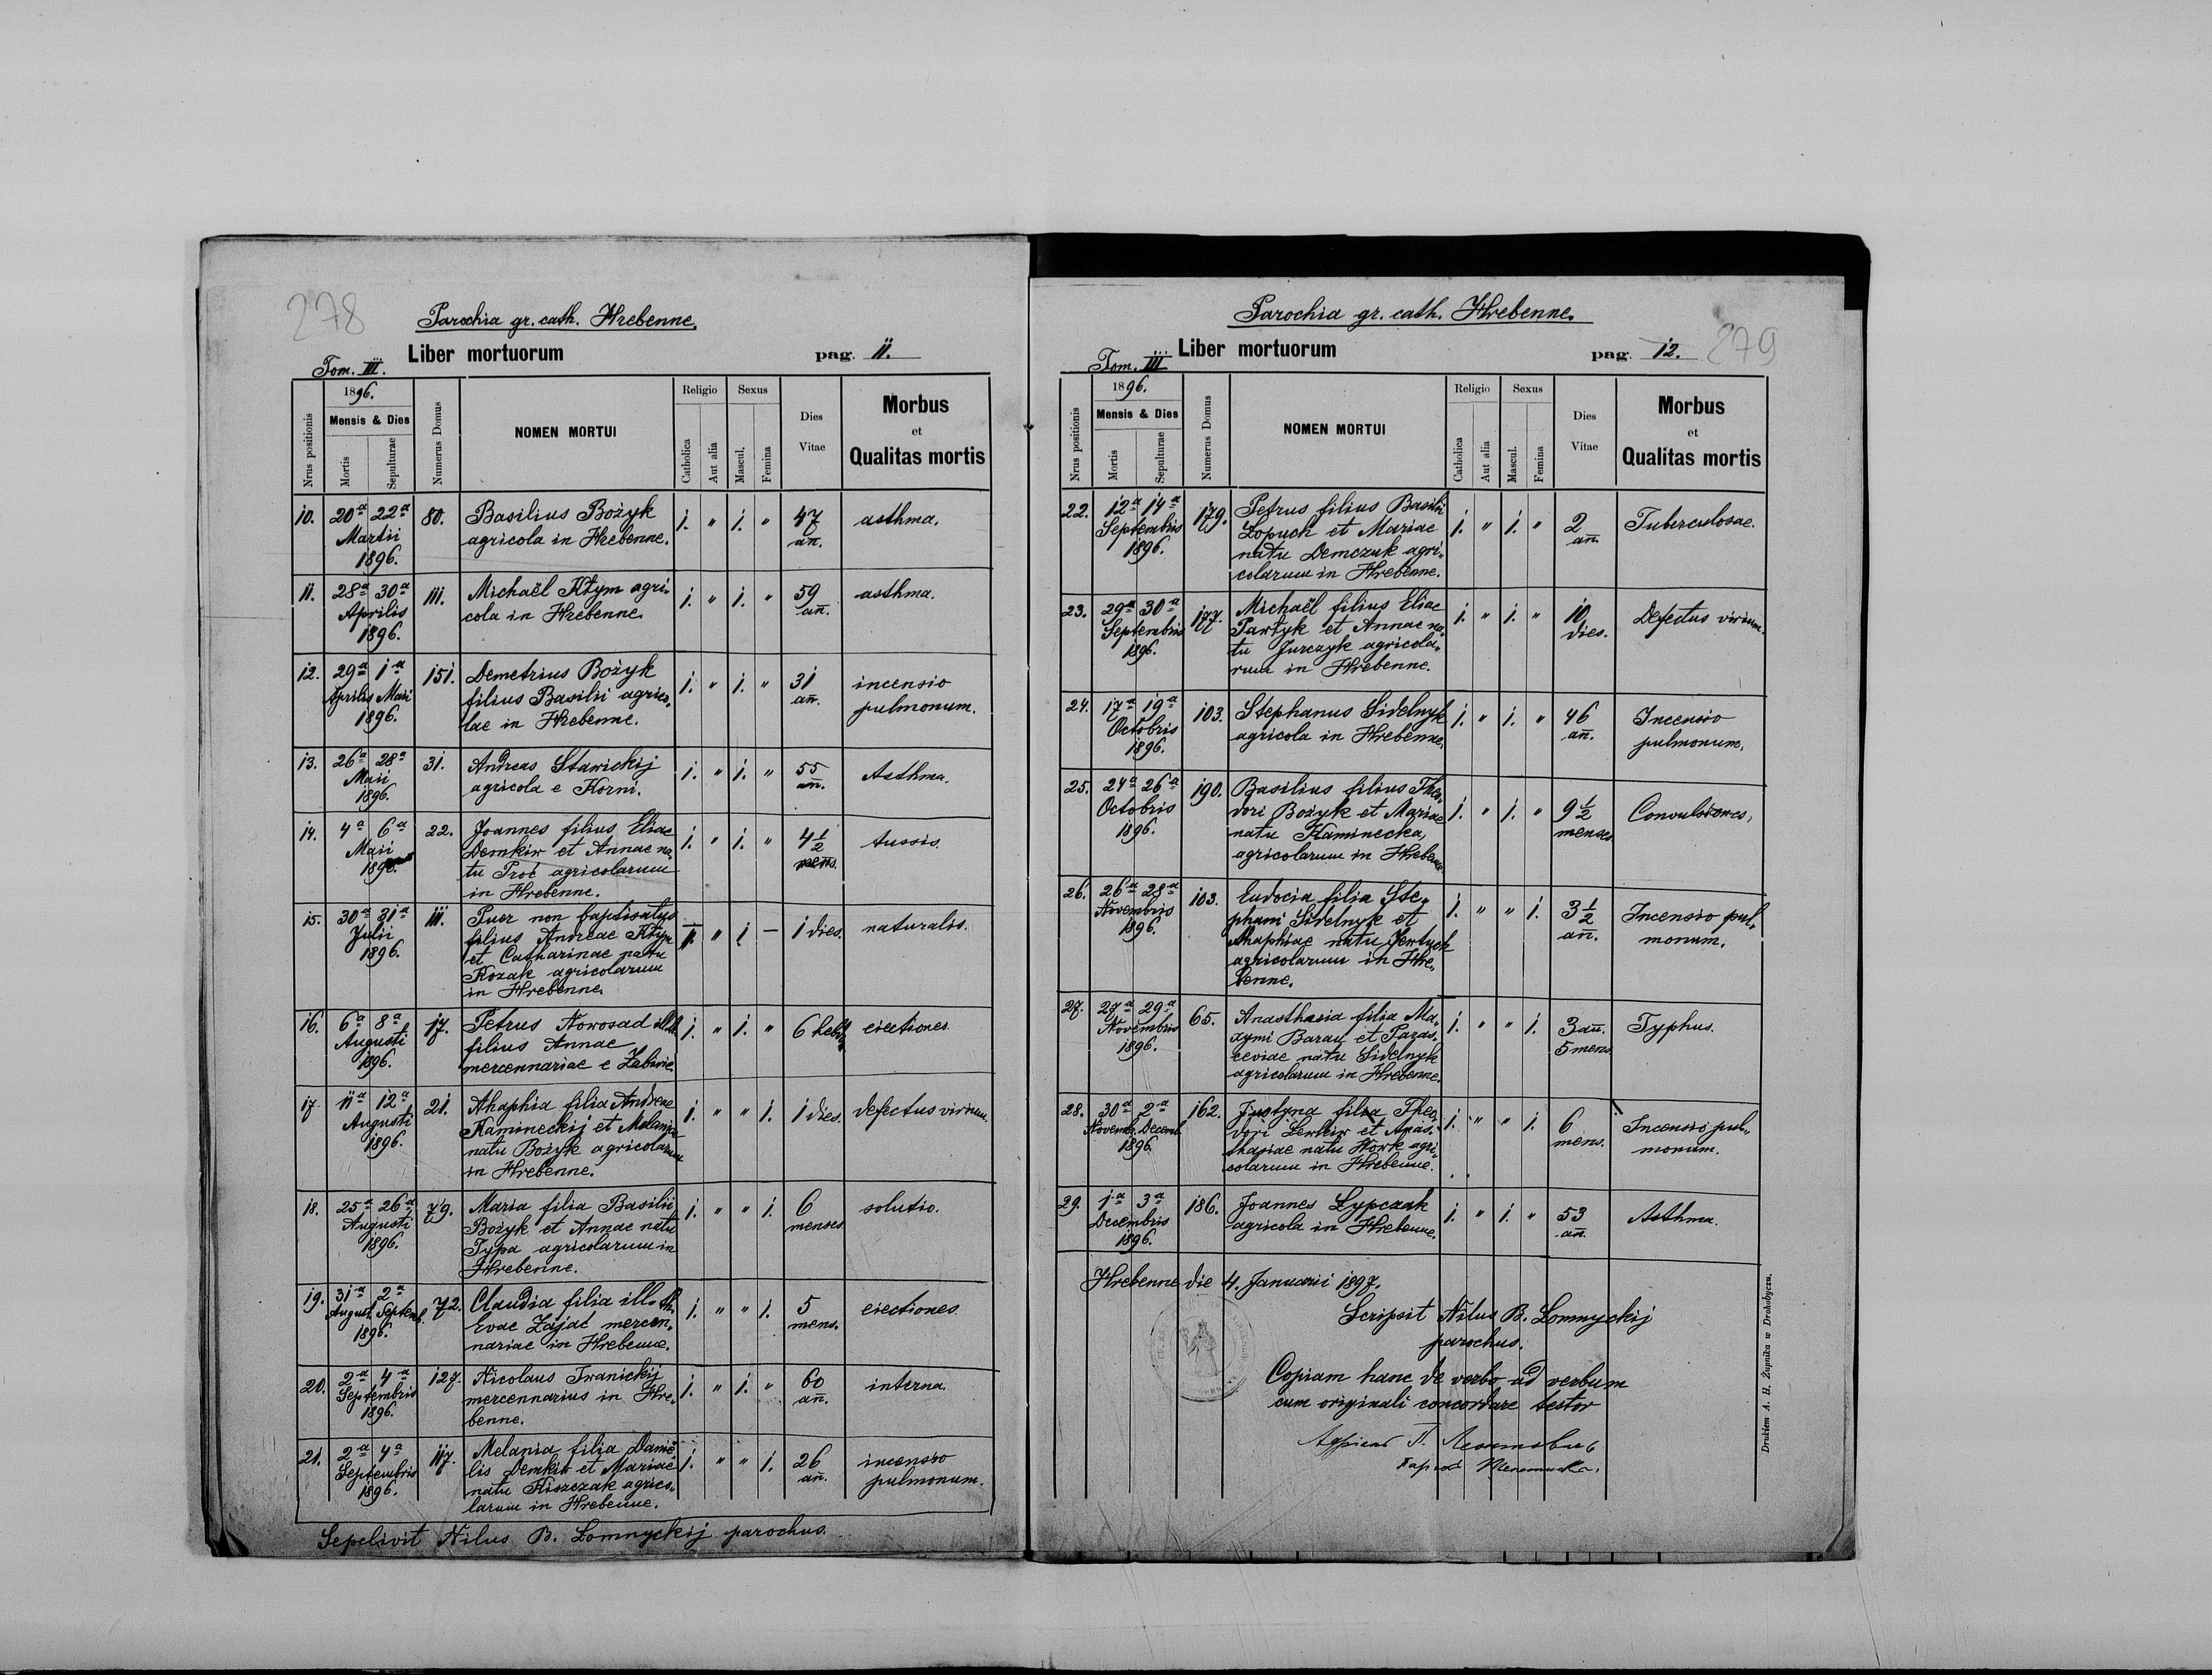 278
Parochia gr. cath. Hrebenne.
Tom. III. Liber mortuorum pag. 11.
Nrus positionis
1896.
Mensis & Dies
Mortis
Sepulturae
Numerus Domus
NOMEN MORTUI
Religio
Catholica
Aut alia
Sexus
Mascul.
Femina
Dies
Vitae
Morbus
et
Qualitas mortis
10. 20a 22a 80. Basilius Bożyk 1. " 1. " 47 asthma.
Martii agricola in Hrebenne. an̄.
1896.
11. 28a 30a 111. Michaël Ktym agri- 1. " 1. " 59 asthma.
Aprilis cola in Hrebenne. an̄.
1896.
12. 29a 1a 151. Demetrius Bożyk 1. " 1. " 31 incensio
Aprilis Maii filius Basilii agrico- an̄. pulmonum.
1896. lae in Hrebenne.
13. 26a 28a 31. Andreas Stawickij 1. " 1. " 55 Asthma.
Maii agricola e Korni. an̄.
1896.
14. 4a 6a 22. Joannes filius Eliae 1. " 1. " 4 1/2 tussis.
Maii Demkiw et Annae na- mens.
1896. tu Proć agricolarum
in Hrebenne.
15. 30a 31a 111. Puer non baptisatus " 1 — 1 dies. naturalis.
Julii filius Andreae Ktym
1896. et Catharinae natu
Kozak agricolarum
in Hrebenne.
16. 6a 8a 17. Petrus Nowosad 1. " 1. " 6 eiectiones.
Augusti filius Annae
1896. mercennariae e
17. 11a 12a 21. Ahaphia filia Andreae 1. " " 1. 1 dies. defectus virium.
Augusti Kamineckij et Melaniae
1896. natu Bożyk agricolarum
in Hrebenne.
18. 25a 26a 79. Maria filia Basilii 1. " " 1. 6 solutio.
Augusti Bożyk et Annae natu menses
1896. Typa agricolarum in
Hrebenne.
19. 31a 2a 72. Claudia filia illeg. 1. " " 1. 5 eiectiones.
August. Septemb. Evae Zając mercen- mens.
1896. nariae in Hrebenne.
20. 2a 4a 127. Nicolaus Iwanickij 1. " 1. " 60 interna.
Septembris mercennarius in Hre- an̄.
1896. benne.
21. 2a 4a 117. Melania filia Danië- 1. " " 1. 26 incensio
Septembris lis Demkiw et Mariae an̄. pulmonum.
1896. natu Kiszczak agrico-
larum in Hrebenne.
Sepelivit Nilus B. Lomnyckij parochus.
Parochia gr. cath. Hrebenne.
279
Tom. III Liber mortuorum pag. 12.
Nrus positionis
1896.
Mensis & Dies
Mortis
Sepulturae
Numerus Domus
NOMEN MORTUI
Religio
Catholica
Aut alia
Sexus
Mascul.
Femina
Dies
Vitae
Morbus
et
Qualitas mortis
22. 12a 14a 179. Petrus filius Basilii 1. " 1. " 2 Tuberculosae.
Septembris Łopuch et Mariae an̄.
1896. natu Demczuk agri-
colarum in Hrebenne.
23. 29a 30a 177. Michaël filius Eliae 1. " 1. " 10 Defectus virium.
Septembris Partyk et Annae na- dies.
1896. tu Jurczyk agricola-
rum in Hrebenne.
24. 17a 19a 103. Stephanus Sidelnyk 1. " 1. " 46 Incensio
Octobris agricola in Hrebenne. an̄. pulmonum.
1896.
25. 24a 26a 190. Basilius filius Theo- 1. " 1. " 9 1/2 Convulsiones,
Octobris dori Bożyk et Mariae menses
1896. natu Kaminecka,
agricolarum in Hrebenne
26. 26a 28a 103. Eudocia filia Ste- 1. " " 1. 3 1/2 Incensio pul-
Novembris phani Sidelnyk et an̄. monum.
1896. Ahaphiae natu
agricolarum in Hre-
benne.
27. 27a 29a 65. Anasthasia filia Ma- 1. " " 1. 3 an̄. Typhus.
Novembris xymi Baran et Paras- 5 mens
1896. ceviae natu Sidelnyk
agricolarum in Hrebenne.
28. 30a 2a 162. Justyna filia Theo- 1. " " 1. 6 Incensio pul-
Novemb. Decemb. dori et Anas- mens. monum.
1896 thasiae natu Work agri-
colarum in Hrebenne.
29. 1a 3a 186. Joannes Lypczak 1. " 1. " 53 Asthma.
Decembris agricola in Hrebenne. an̄.
1896.
Hrebenne die 4. Januarii 1897.
Scripsit Nilus B. Lomnyckij
parochus.
Copiam hanc de verbo ad verbum
cum originali concordare testor
Drukiem A. H. Żupnika w Drohobyczu.